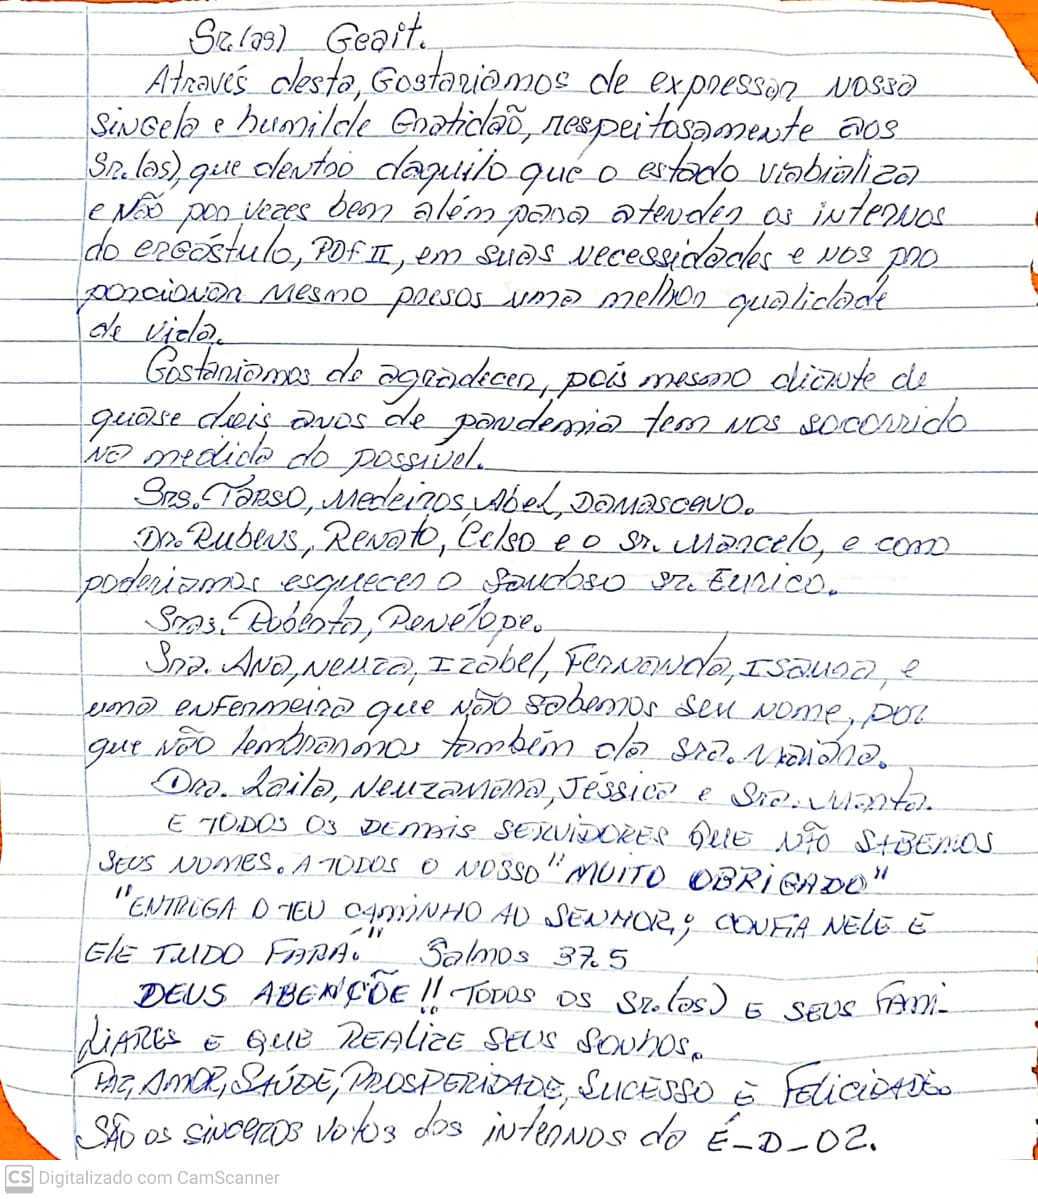 Sr.(as) Geait.
Através desta, Gostariamos de expressar nossa
singela e humilde Gratidão, respeitosamente aos
Sr.(as), que dentro daquilo que o estado viabializa
e não por vezes bem além para atender os internos
do ergástulo, PDF II, em suas necessidades e nos pro
porcionar mesmo presos uma melhor qualidade
de vida.
Gostariamos de agradecer, pois mesmo diante de
quase dois anos de pandemia tem nos socorrido
na medida do possível.
Srs. Tarso, Medeiros, Abel, Damasceno.
Dr. Rubens, Renato, Celso e o Sr. Marcelo, e como
poderiamos esquecer o saudoso sr. Eurico.
Sras. Roberta, Penélope.
Sra. Ana, Neuza, Izabel, Fernanda, Isaura, e
uma enfermeira que não sabemos seu nome, por
que não lembrarmos também da sra.
Dra. Laila, Neuzamara, Jéssica e Sra.
E TODOS OS DEMAIS SERVIDORES QUE NÃO SABEMOS
SEUS NOMES. A TODOS O NOSSO "MUITO OBRIGADO"
"ENTREGA O TEU CAMINHO AO SENHOR; CONFIA NELE E
ELE TUDO FARÁ." Salmos 37.5
DEUS ABENÇÕE!! TODOS OS Sr.(as) E SEUS FAMI-
LIARES E QUE REALIZE SEUS SONHOS.
PAZ, AMOR, SAÚDE, PROSPERIDADE, SUCESSO E FELICIDADE.
SÃO OS SINCEROS VOTOS dos internos do É-D-02.
CS Digitalizado com CamScanner